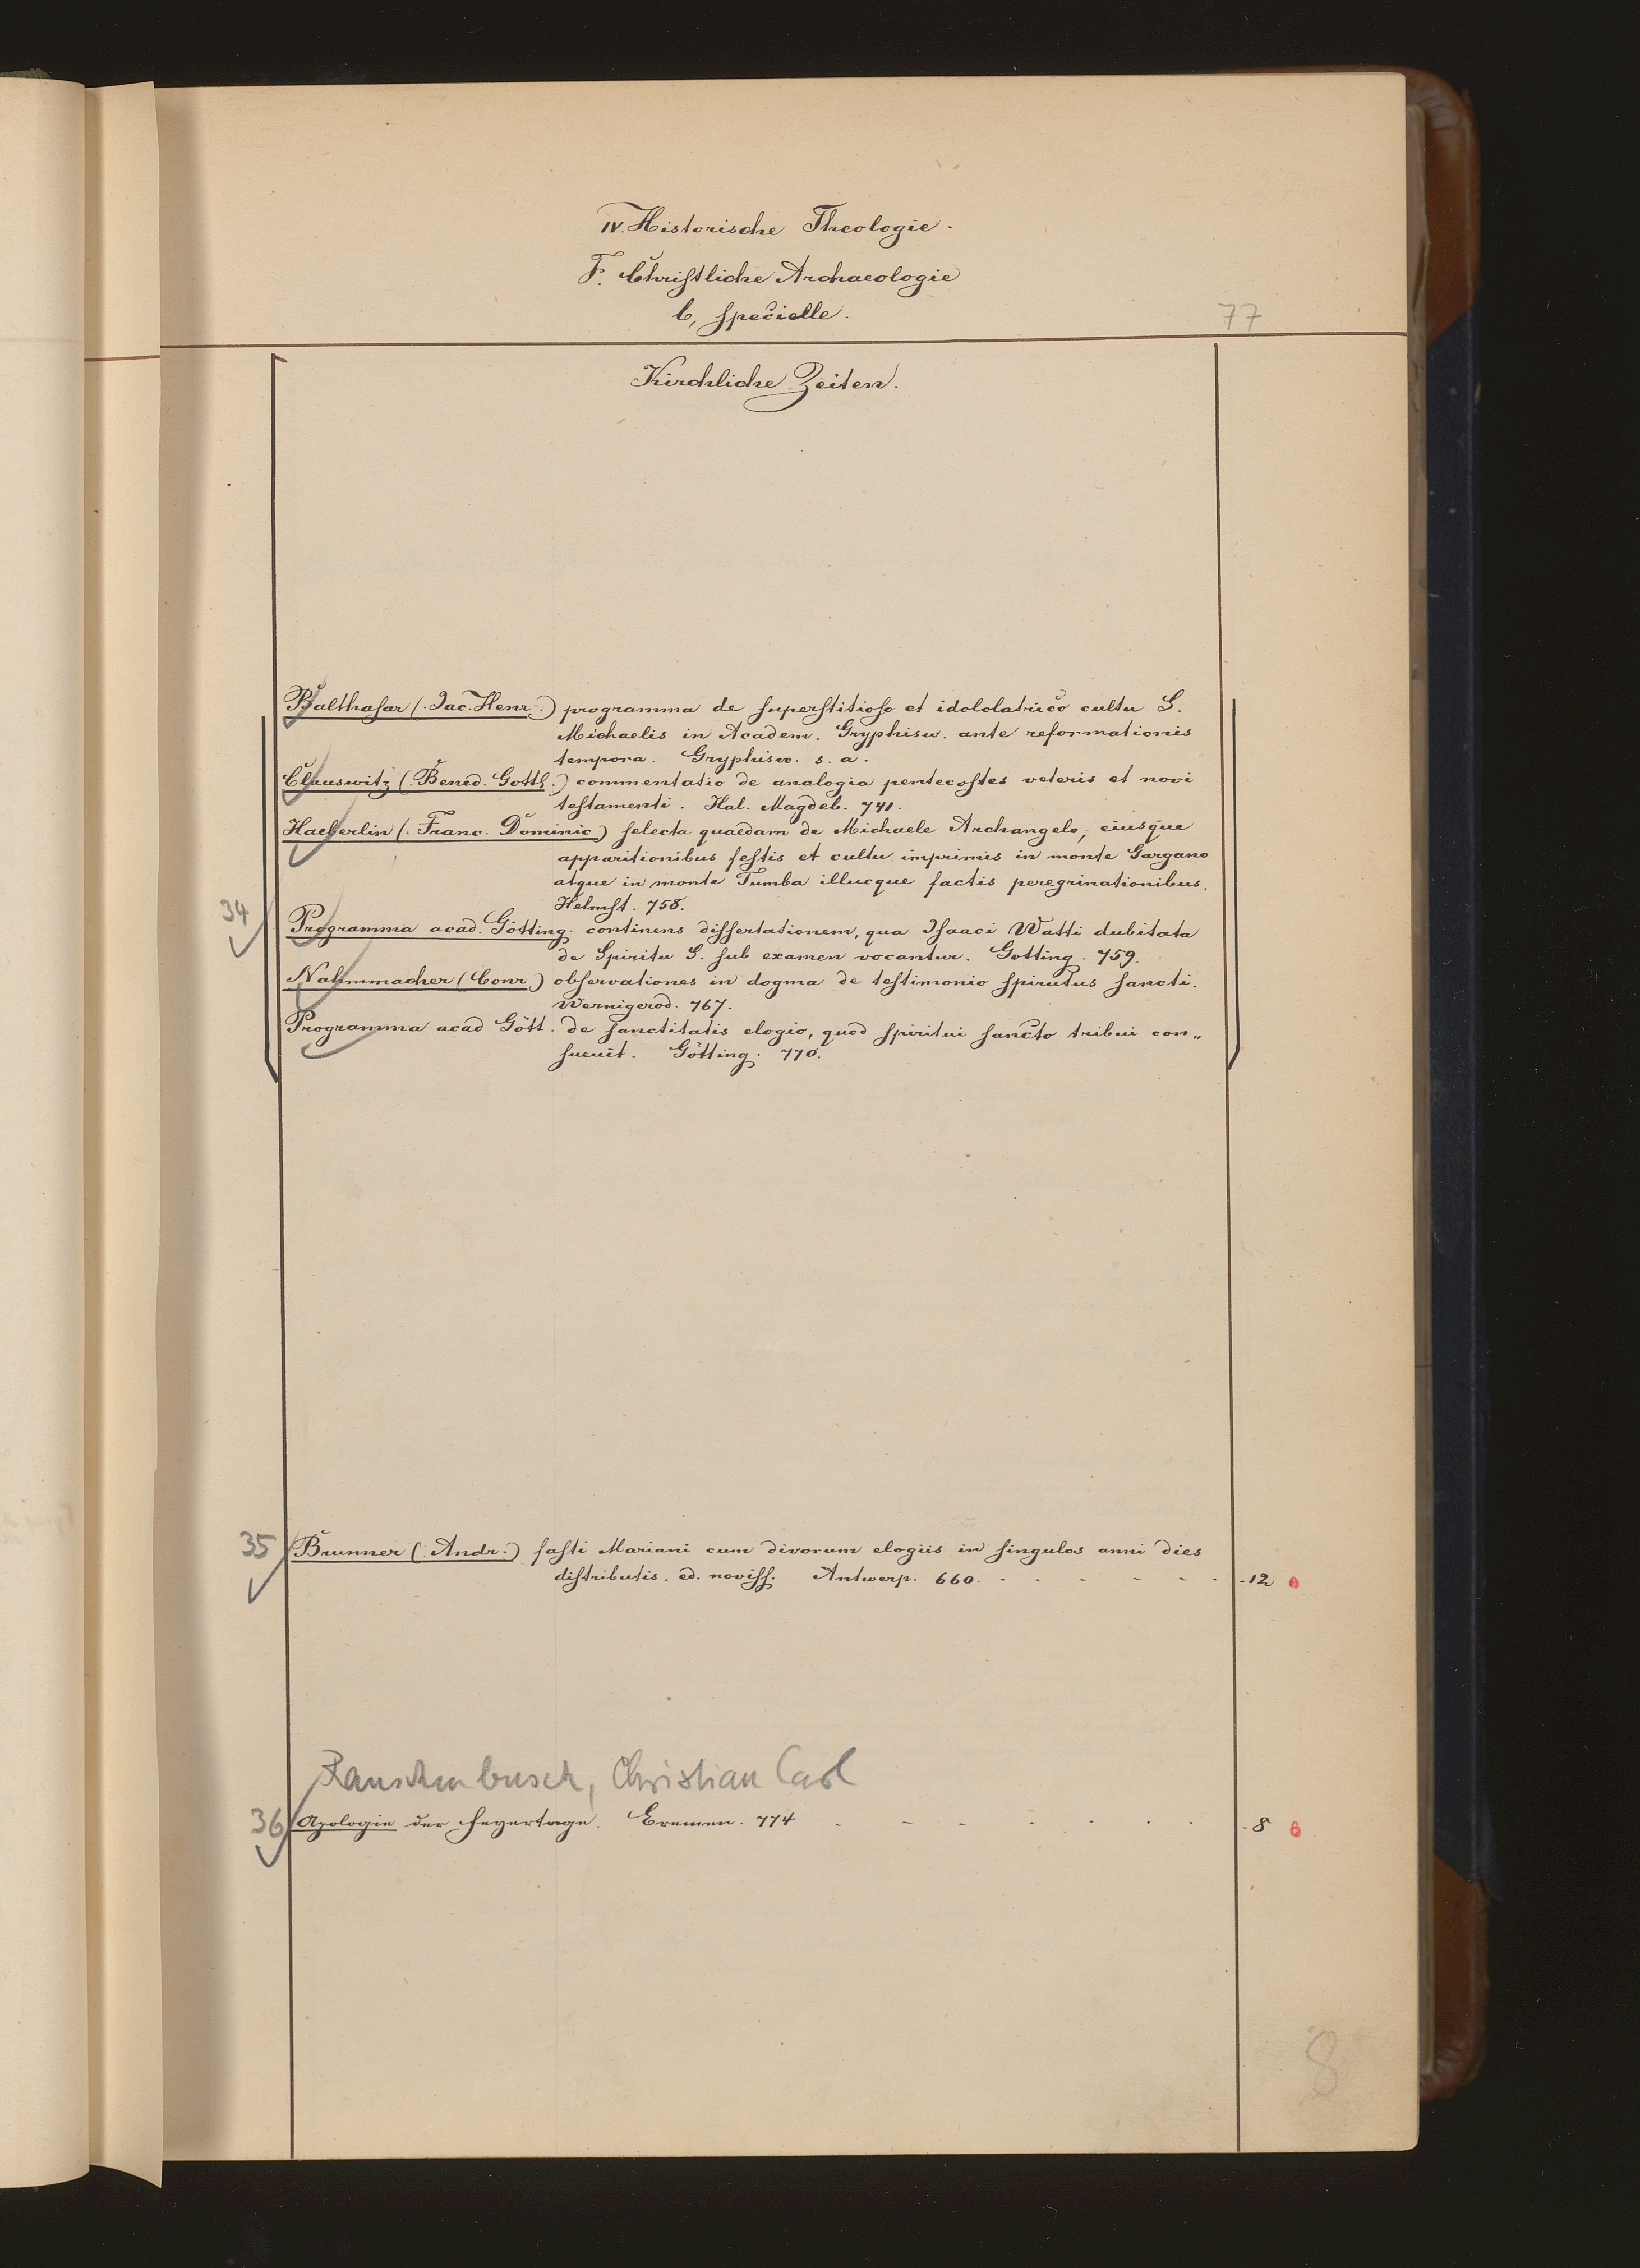 IV. Historische Theologie.
F. Christliche Archaeologie
b, specielle.
77
Kirchliche Zeiten.
Balthasar (Jac. Henr.) programma de superstitioso et idololatrico cultu S.
Michaelis in Academ. Gryphisw. ante reformationis
tempora. Gryphisw. s. a.
Clauswitz (Bened. Gottl.) commentatio de analogia pentecostes veteris et novi
testamenti. Hal. Magdeb. 741.
Haeberlin (Franc. Dominic) selecta quaedam de Michaele Archangelo, eiusque
apparitionibus festis et cultu imprimis in monte Gargano
atque in monte Tumba illucque factis peregrinationibus.
Helmst. 758.
34 Programma acad. Götting. continens dissertationem, qua Isaaci Watti dubitata
de Spiritu S. sub examen vocantur. Gotting. 759.
Nahmmacher (Conr.) observationes in dogma de testimonio spirutus sancti.
Wernigerod. 767.
Programma acad Gött. de sanctitatis elogio, quod spiritui sancto tribui con„
suevit. Götting. 770.
35 Brunner (Andr.) fasti Mariani cum divorum elogiis in singulos anni dies
distributis. ed. noviss. Antwerp. 660. - - - - - - 12 6
Rauschenbusch, Christian Carl
36 Apologie der Feyertage. Bremen. 774 - - - - - - 8 6
8